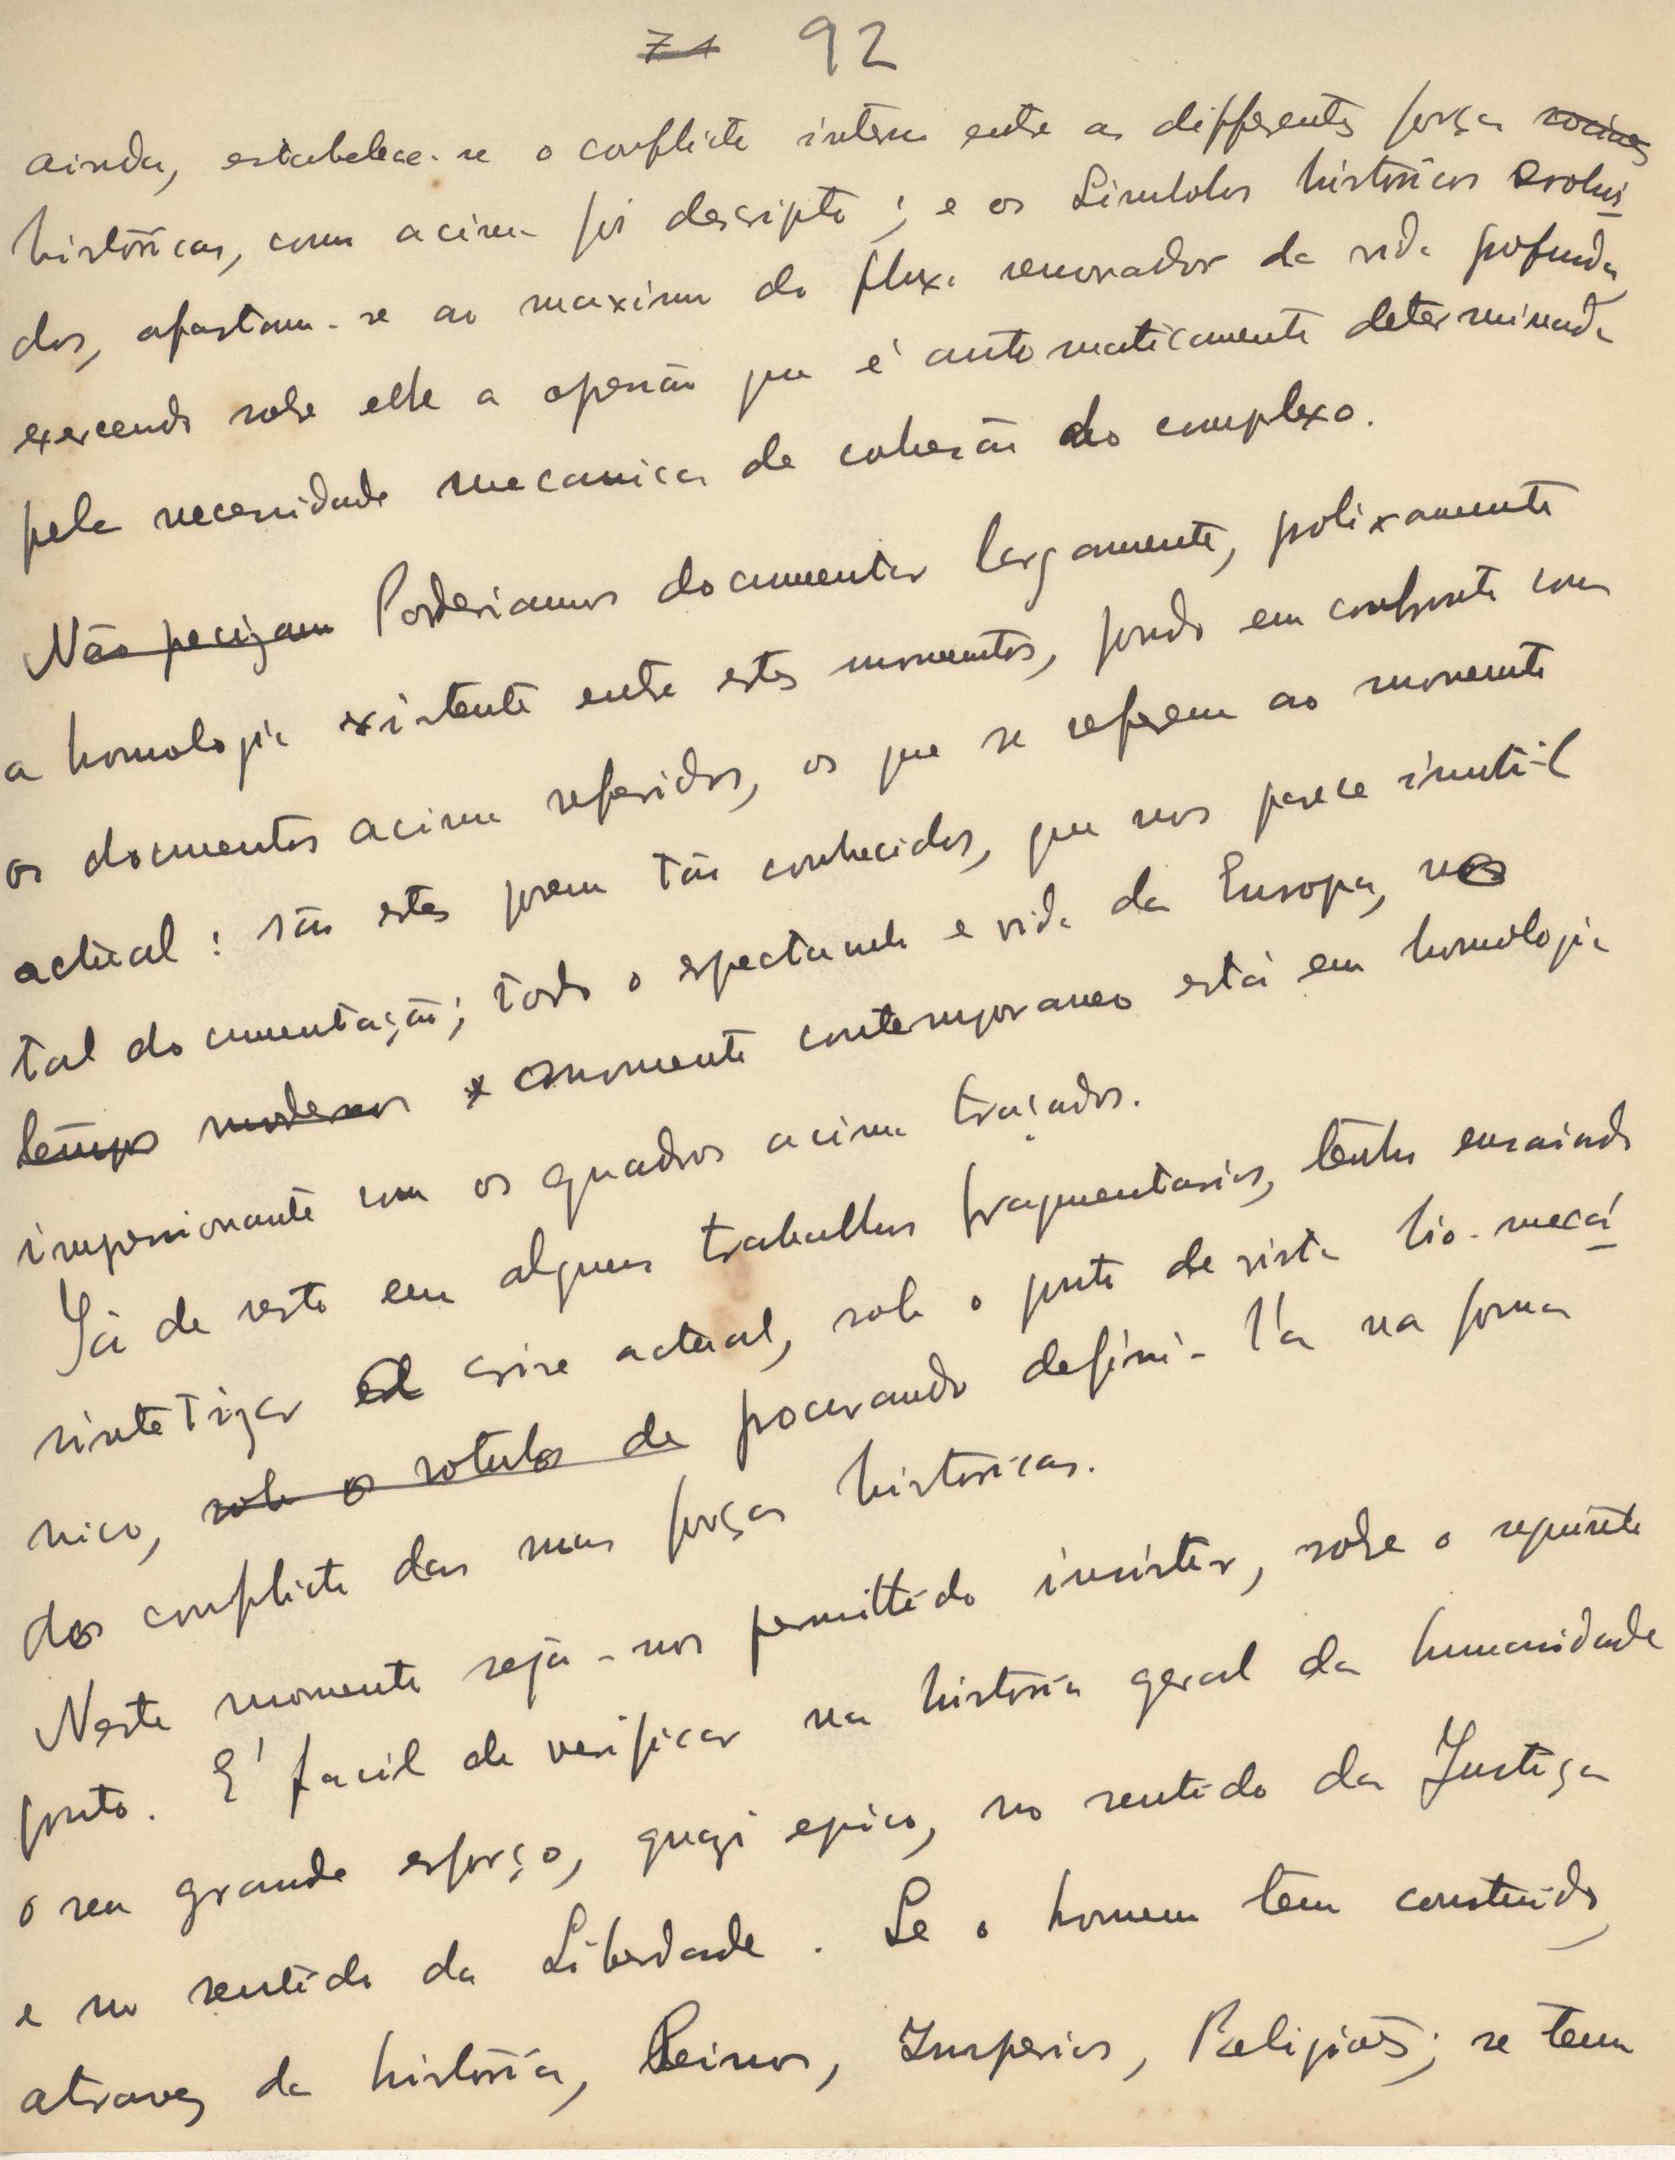 74 92
ainda, estabelece-se o conflicto interno entre as differentes forças sociaes
históricas, como acima foi descripto; e os Simbolos históricos evolui-
dos, afastam-se ao maximo do fluxo renovador da vida profunda,
exercendo sobre elle a opressão que é automaticamente determinada
pela necessidade mecanica de cohesão do complexo.
Não precizam Poderiamos documentar largamente, prolixamente
a homologia existente entre estes momentos, pondo em confronto com
os documentos acima referidos, os que se referem ao momento
actual: são estes porem tão conhecidos, que nos parece inutil
tal documentação; todo o espectaculo e vida da Europa, no
tempos modernos momento contemporaneo está em homologia
impressionante com os quadros acima traçados.
Já de resto em alguns trabalhos fragmentarios, tenho ensaiado
sintetizar a crise actual, sob o ponto de vista bio-mecâ-
nico, sob o rotulo de procurando defini-l'a na forma
dos conflicto das suas forças históricas.
Neste momento seja-nos permittido insistir, sobre o seguinte
ponto. E' facil de verificar na história geral da humanidade
o seu grande esforço, quazi epico, no sentido da Justiça
e no sentido da Liberdade. Se o homem tem construido,
atravez da história, Reinos, Imperios, Religiões; se tem